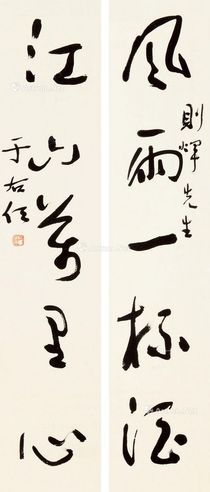 風雨一杯酒
則輝先生
江山萬里心
于右任